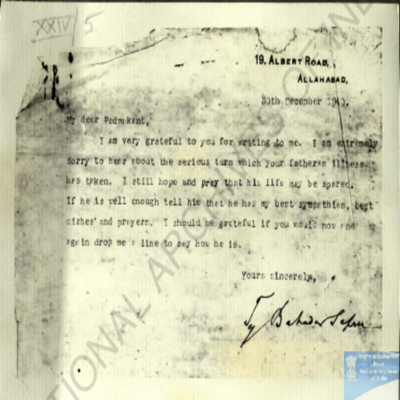 XXIV/5
19, ALBERT ROAD,
ALLAHABAD,
30th December 1940.
My dear Padmakant,
I am very grateful to you for writing to me. I am extremely
sorry to hear about the serious turn which your fathers illness
has taken. I still hope and pray that his life may be spared.
If he is well enough tell him that he has my best sympathies, best
wishes and prayers. I should be grateful if you would now and
again drop me a line to say how he is.
Yours sincerely,
Tej Bahadur Sapru
NATIONAL ARCHIVES OF INDIA